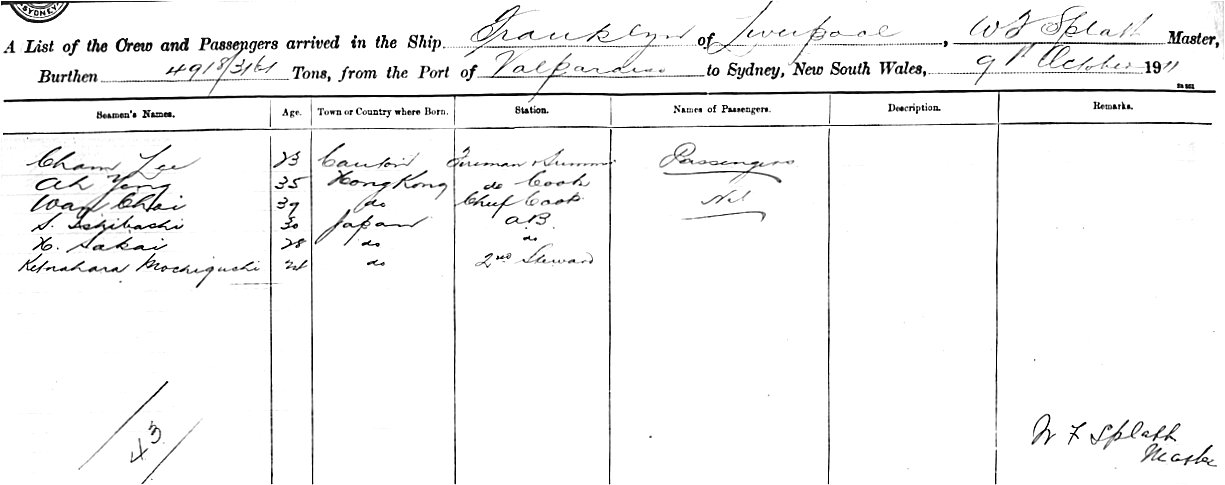 SYDNEY
A List of the Crew and Passengers arrived in the Ship Franklyn of Liverpool, W F Splatt Master,
Burthen 4918/3161 Tons, from the Port of Valparaiso to Sydney, New South Wales, 9th October 1911
Seamen's Names. Age. Town or Country where Born. Station. Names of Passengers. Description. Remarks.
Cham Lee 23 Canton Fireman Passengers
Ah Yong 35 Hong Kong do Cook
Wan Choi 39 do Chief Cook Nil
S. Ishibashi 30 Japan A.B.
H. Sakai 28 do do
Mochiguchi 24 do 2nd Steward
43
W F Splatt
Master